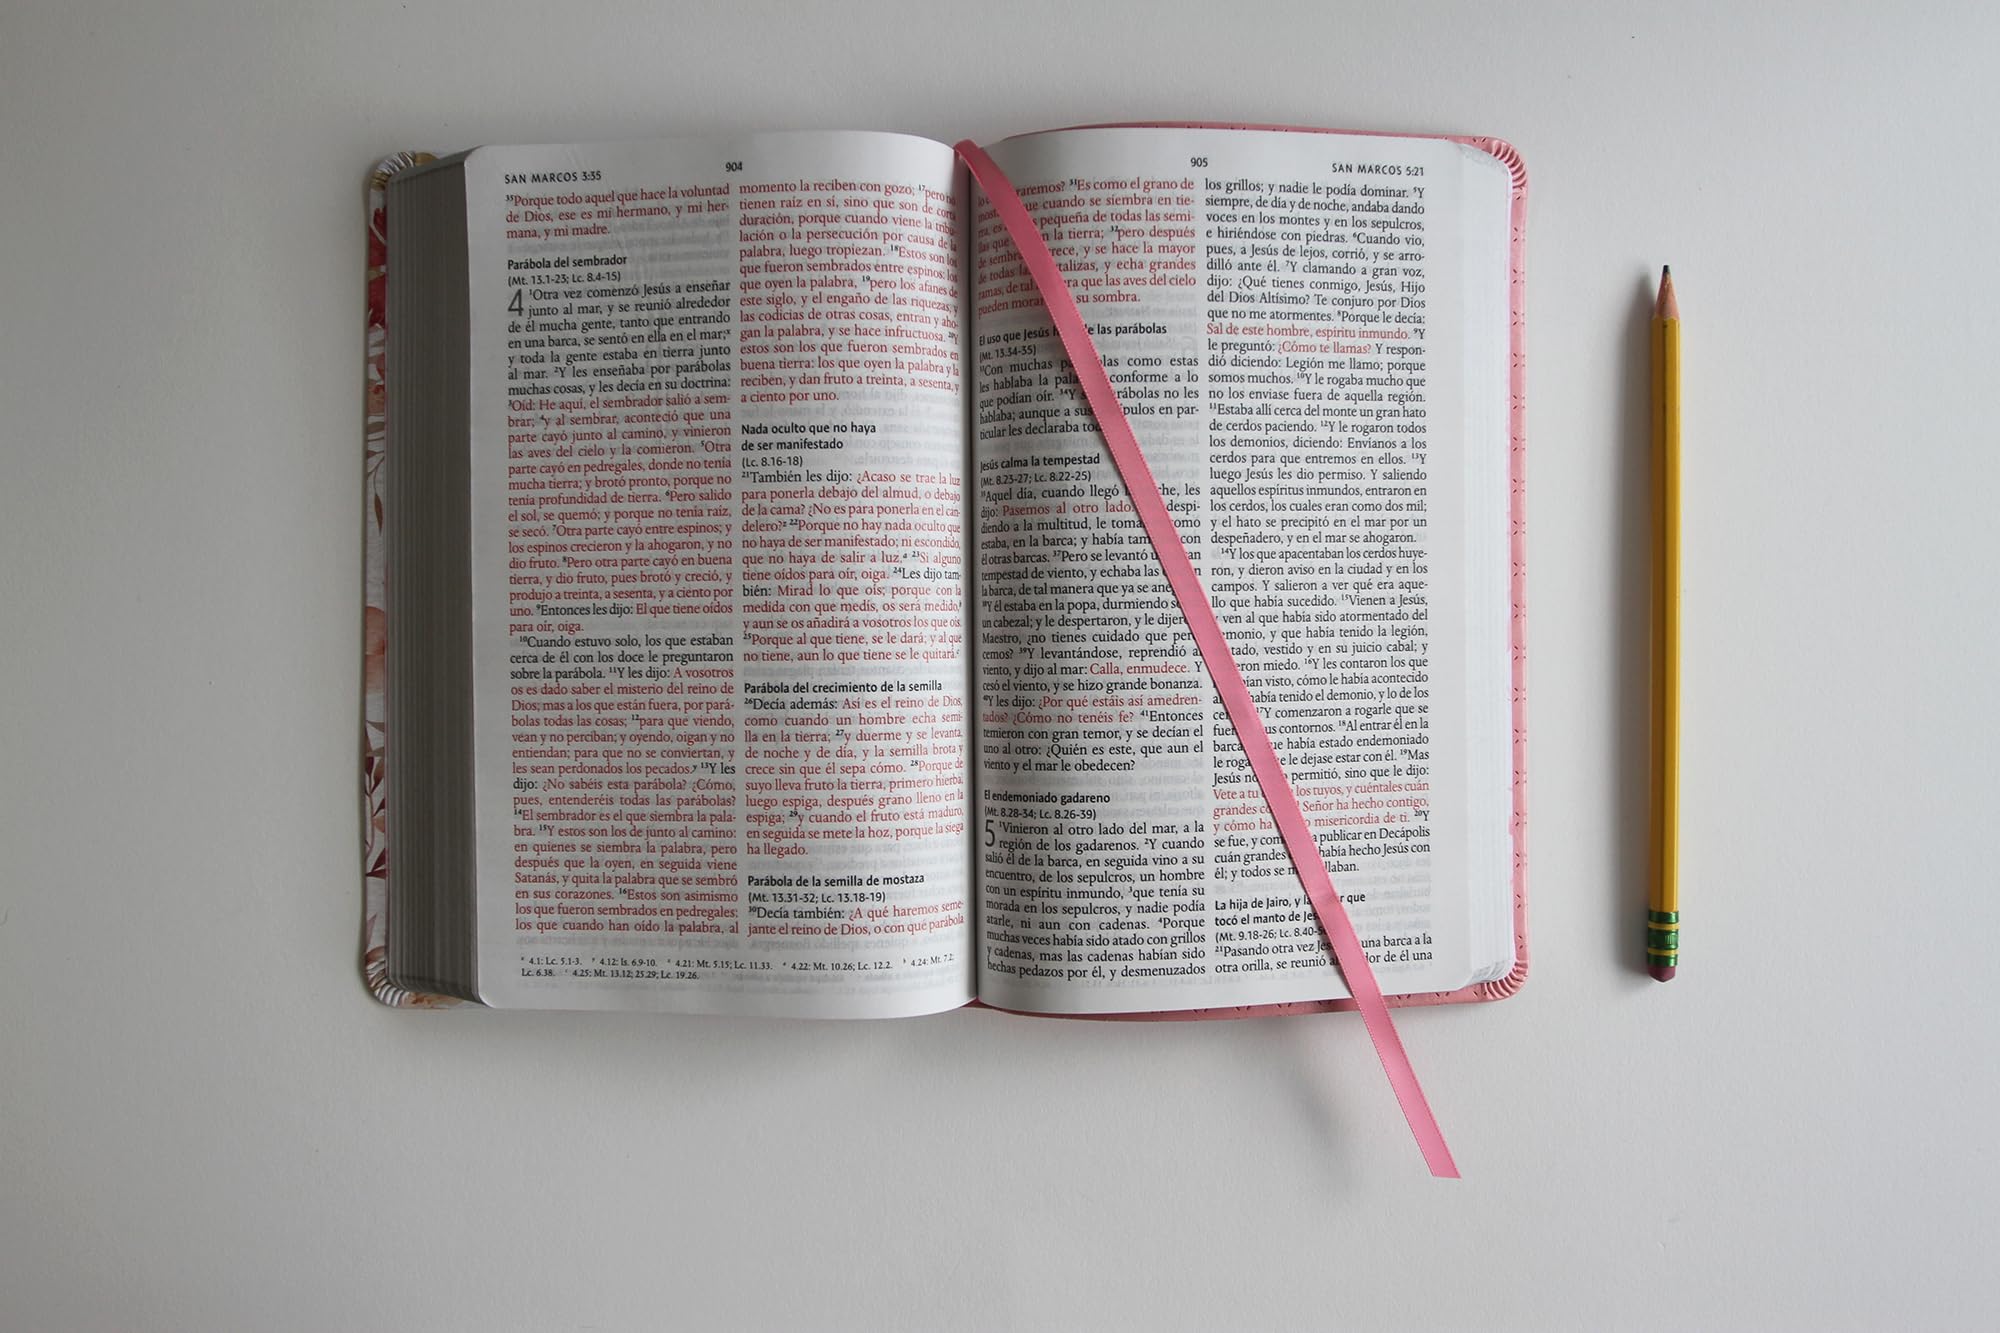 SAN MARCOS 3:35
904
³⁵Porque todo aquel que hace la voluntad
de Dios, ese es mi hermano, y mi her-
mana, y mi madre.
Parábola del sembrador
(Mt. 13.1-23; Lc. 8.4-15)
4 ¹Otra vez comenzó Jesús a enseñar
junto al mar, y se reunió alrededor
de él mucha gente, tanto que entrando
en una barca, se sentó en ella en el mar;ˣ
y toda la gente estaba en tierra junto
al mar. ²Y les enseñaba por parábolas
muchas cosas, y les decía en su doctrina:
³Oíd: He aquí, el sembrador salió a sem-
brar; ⁴y al sembrar, aconteció que una
parte cayó junto al camino, y vinieron
las aves del cielo y la comieron. ⁵Otra
parte cayó en pedregales, donde no tenía
mucha tierra; y brotó pronto, porque no
tenía profundidad de tierra. ⁶Pero salido
el sol, se quemó; y porque no tenía raíz,
se secó. ⁷Otra parte cayó entre espinos; y
los espinos crecieron y la ahogaron, y no
dio fruto. ⁸Pero otra parte cayó en buena
tierra, y dio fruto, pues brotó y creció, y
produjo a treinta, a sesenta, y a ciento por
uno. ⁹Entonces les dijo: El que tiene oídos
para oír, oiga.
¹⁰Cuando estuvo solo, los que estaban
cerca de él con los doce le preguntaron
sobre la parábola. ¹¹Y les dijo: A vosotros
os es dado saber el misterio del reino de
Dios; mas a los que están fuera, por pará-
bolas todas las cosas; ¹²para que viendo,
vean y no perciban; y oyendo, oigan y no
entiendan; para que no se conviertan, y
les sean perdonados los pecados.ʸ ¹³Y les
dijo: ¿No sabéis esta parábola? ¿Cómo,
pues, entenderéis todas las parábolas?
¹⁴El sembrador es el que siembra la pala-
bra. ¹⁵Y estos son los de junto al camino:
en quienes se siembra la palabra, pero
después que la oyen, en seguida viene
Satanás, y quita la palabra que se sembró
en sus corazones. ¹⁶Estos son asimismo
los que fueron sembrados en pedregales:
los que cuando han oído la palabra, al
momento la reciben con gozo; ¹⁷pero no
tienen raíz en sí, sino que son de corta
duración, porque cuando viene la tribu-
lación o la persecución por causa de la
palabra, luego tropiezan. ¹⁸Estos son los
que fueron sembrados entre espinos: los
que oyen la palabra, ¹⁹pero los afanes de
este siglo, y el engaño de las riquezas, y
las codicias de otras cosas, entran y aho-
gan la palabra, y se hace infructuosa. ²⁰Y
estos son los que fueron sembrados en
buena tierra: los que oyen la palabra y la
reciben, y dan fruto a treinta, a sesenta, y
a ciento por uno.
Nada oculto que no haya
de ser manifestado
(Lc. 8.16-18)
²¹También les dijo: ¿Acaso se trae la luz
para ponerla debajo del almud, o debajo
de la cama? ¿No es para ponerla en el can-
delero?ᶻ ²²Porque no hay nada oculto que
no haya de ser manifestado; ni escondido,
que no haya de salir a luz.ᵃ ²³Si alguno
tiene oídos para oír, oiga. ²⁴Les dijo tam-
bién: Mirad lo que oís; porque con la
medida con que medís, os será medido,ᵇ
y aun se os añadirá a vosotros los que oís.
²⁵Porque al que tiene, se le dará; y al que
no tiene, aun lo que tiene se le quitará.ᶜ
Parábola del crecimiento de la semilla
²⁶Decía además: Así es el reino de Dios,
como cuando un hombre echa semi-
lla en la tierra; ²⁷y duerme y se levanta,
de noche y de día, y la semilla brota y
crece sin que él sepa cómo. ²⁸Porque de
suyo lleva fruto la tierra, primero hierba,
luego espiga, después grano lleno en la
espiga; ²⁹y cuando el fruto está maduro,
en seguida se mete la hoz, porque la siega
ha llegado.
Parábola de la semilla de mostaza
(Mt. 13.31-32; Lc. 13.18-19)
³⁰Decía también: ¿A qué haremos seme-
jante el reino de Dios, o con qué parábola
ˣ 4.1: Lc. 5.1-3. ʸ 4.12: Is. 6.9-10. ᶻ 4.21: Mt. 5.15; Lc. 11.33. ᵃ 4.22: Mt. 10.26; Lc. 12.2. ᵇ 4.24: Mt. 7.2;
Lc. 6.38. ᶜ 4.25: Mt. 13.12; 25.29; Lc. 19.26.
905
SAN MARCOS 5:21
³¹Es como el grano de
que cuando se siembra en tie-
pequeña de todas las semi-
llas que la tierra; ³²pero después
de y se hace la mayor
de todas y echa grandes
ramas, de tal que las aves del cielo
pueden su sombra.
El uso que Jesús de las parábolas
(Mt. 13.34-35)
³³Con muchas como estas
les hablaba la conforme a lo
que podían oír. ³⁴Y no les
hablaba; aunque a sus en par-
ticular les declaraba
Jesús calma la tempestad
(Mt. 8.23-27; Lc. 8.22-25)
³⁵Aquel día, cuando llegó les
dijo: Pasemos al otro lado. despi-
diendo a la multitud, le como
estaba, en la barca; y había con
él otras barcas. ³⁷Pero se levantó
tempestad de viento, y echaba las
la barca, de tal manera que ya se
³⁸Y él estaba en la popa, durmiendo
un cabezal; y le despertaron, y le
Maestro, ¿no tienes cuidado que
cemos? ³⁹Y levantándose, reprendió
viento, y dijo al mar: Calla, enmudece. Y
cesó el viento, y se hizo grande bonanza.
⁴⁰Y les dijo: ¿Por qué estáis así amedren-
tados? ¿Cómo no tenéis fe? ⁴¹Entonces
temieron con gran temor, y se decían el
uno al otro: ¿Quién es este, que aun el
viento y el mar le obedecen?
El endemoniado gadareno
(Mt. 8.28-34; Lc. 8.26-39)
5 ¹Vinieron al otro lado del mar, a la
región de los gadarenos. ²Y cuando
salió él de la barca, en seguida vino a su
encuentro, de los sepulcros, un hombre
con un espíritu inmundo, ³que tenía su
morada en los sepulcros, y nadie podía
atarle, ni aun con cadenas. ⁴Porque
muchas veces había sido atado con grillos
y cadenas, mas las cadenas habían sido
hechas pedazos por él, y desmenuzados
los grillos; y nadie le podía dominar. ⁵Y
siempre, de día y de noche, andaba dando
voces en los montes y en los sepulcros,
e hiriéndose con piedras. ⁶Cuando vio,
pues, a Jesús de lejos, corrió, y se arro-
dilló ante él. ⁷Y clamando a gran voz,
dijo: ¿Qué tienes conmigo, Jesús, Hijo
del Dios Altísimo? Te conjuro por Dios
que no me atormentes. ⁸Porque le decía:
Sal de este hombre, espíritu inmundo. ⁹Y
le preguntó: ¿Cómo te llamas? Y respon-
dió diciendo: Legión me llamo; porque
somos muchos. ¹⁰Y le rogaba mucho que
no los enviase fuera de aquella región.
¹¹Estaba allí cerca del monte un gran hato
de cerdos paciendo. ¹²Y le rogaron todos
los demonios, diciendo: Envíanos a los
cerdos para que entremos en ellos. ¹³Y
luego Jesús les dio permiso. Y saliendo
aquellos espíritus inmundos, entraron en
los cerdos, los cuales eran como dos mil;
y el hato se precipitó en el mar por un
despeñadero, y en el mar se ahogaron.
¹⁴Y los que apacentaban los cerdos huye-
ron, y dieron aviso en la ciudad y en los
campos. Y salieron a ver qué era aque-
llo que había sucedido. ¹⁵Vienen a Jesús,
y ven al que había sido atormentado del
y que había tenido la legión,
vestido y en su juicio cabal; y
miedo. ¹⁶Y les contaron los que
visto, cómo le había acontecido
había tenido el demonio, y lo de los
¹⁷Y comenzaron a rogarle que se
sus contornos. ¹⁸Al entrar él en la
había estado endemoniado
le dejase estar con él. ¹⁹Mas
Jesús permitió, sino que le dijo:
Vete a tu los tuyos, y cuéntales cuán
grandes Señor ha hecho contigo,
y cómo ha misericordia de ti. ²⁰Y
se fue, y publicar en Decápolis
cuán grandes había hecho Jesús con
él; y todos se
La hija de Jairo, y la que
tocó el manto de
(Mt. 9.18-26; Lc.
²¹Pasando otra vez una barca a la
otra orilla, se reunió de él una